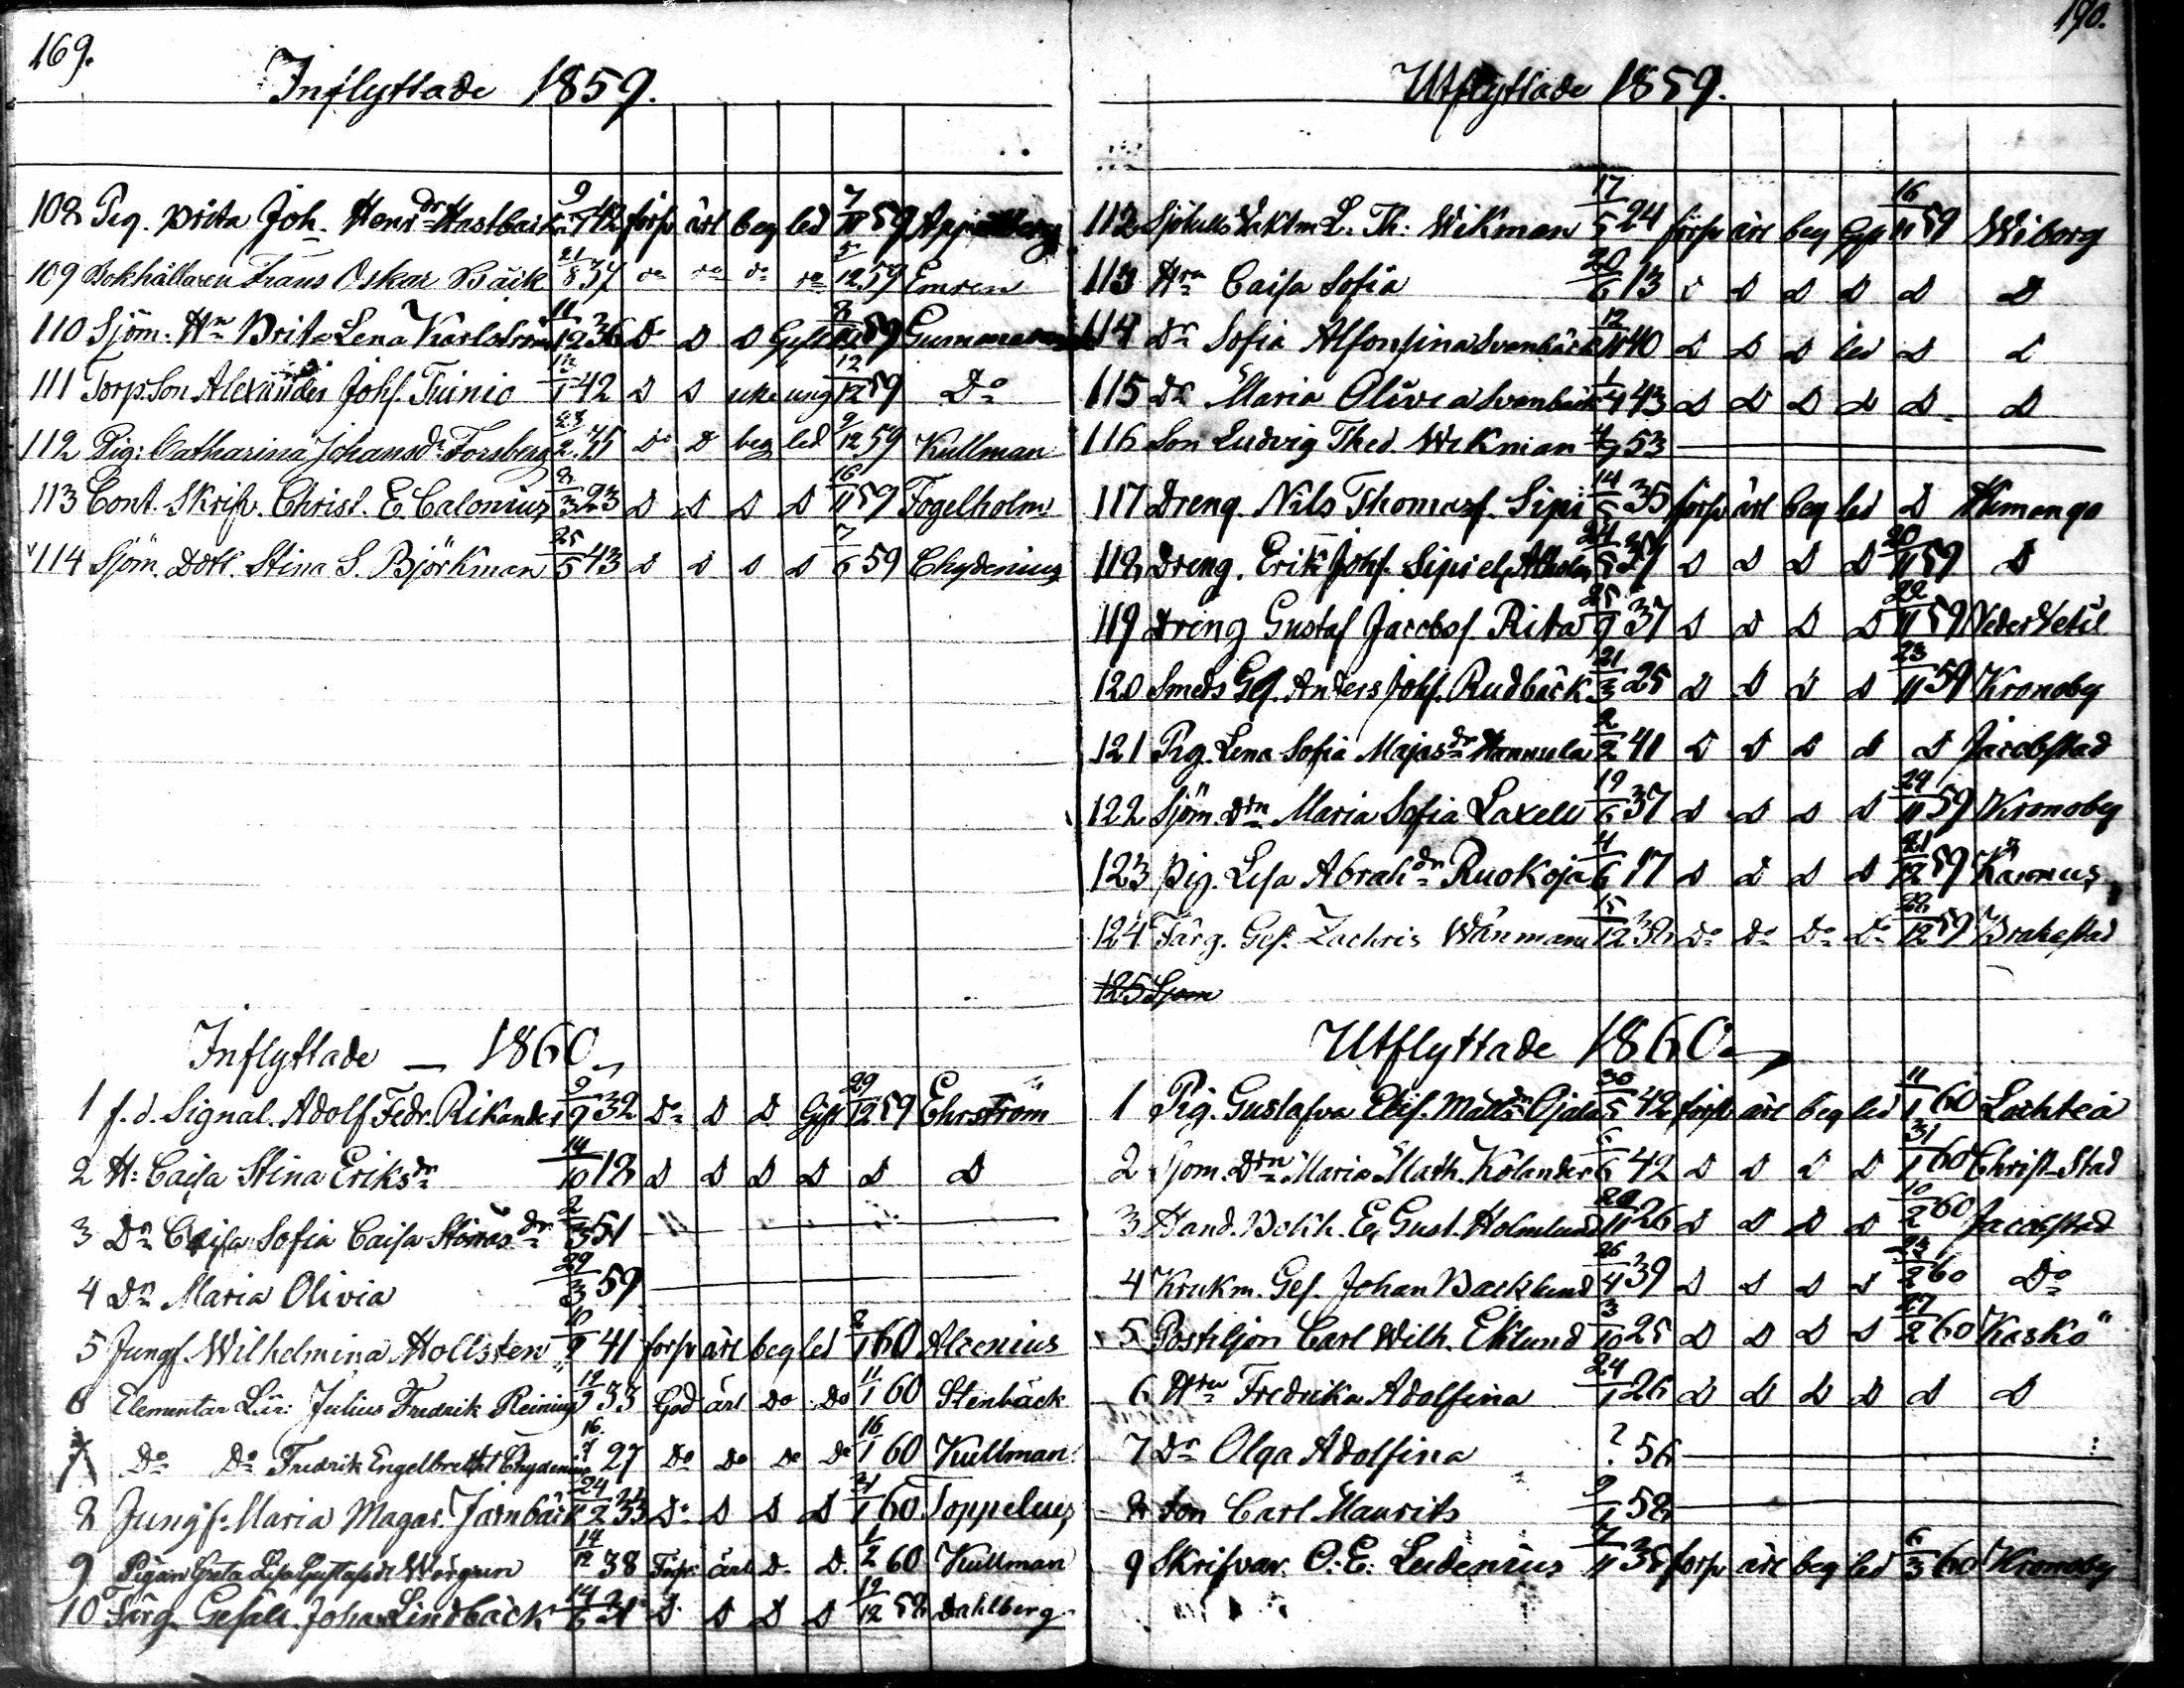 169.
Inflyttade 1859.
108 Pig. Brita Joh. Henr.dr Hastback 9/12 42 försv ärl beg led 7/11 59 Appelberg
109 Bokhållaren Frans Oskar Bäck 21/8 37 do do do do 5/12 59 Emren
110 Sjöm. Hu Brita Lena Karlström 11/12 36 Do D D Gift 59
111 Torp.Son Alexander Johs. Tuinio 12/1 42 D D uke ung 12/12 59 Do
112 Pig: Catharina Johansdr Forsberg 23/2 35 Do D beg led 9/12 59 Kullman
113 Cont. Skrifv. Christ. E. Calonius 2/3 23 D D D D 16/11 59 Fogelholm
114 Sjöm. Dott. Stina S. Björkman 25/5 43 D D D D 7/6 59 Chydenius
Inflyttade — 1860
1 f.d. Signal. Adolf Fedr. Rikander 9/9 32 Do D D Gift 29/12 59 Ehrström
2 H: Caisa Stina Eriksdr 14/10 18 D D D D D D
3 Dr Caisa Sofia Caisa dr 2/3 51
4 Dr Maria Olivia 29/3 59
5 Jungf. Wilhelmina Hollsten 41 försv ärl beg led 2/1 60 Alcenius
6 Elementar Lär: Julius Fredrik Reinius 12/9 33 God ärl Do Do 11/1 60 Stenbäck
7 Do Do Fredrik Engelbrekt Chydenius 16 27 Do Do Do Do 16/1 60 Kullman
8 Jungf. Maria Magar. Jarnbäck 24/2 33 Do D D D 21/1 60 Toppelius
9 Pigan Greta Lisa Gustafsdr Wärgren 14/12 38 Förs. ärl. D. D. 1/2 60 Kullman
10 Färg. Gesäll. Johan Lindbäck 14/6 31 D D D D 19/12 58 Dahlberg
190.
Utflyttade 1859.
112 Vaktm L. Th: Wikman 17/5 24 försv ärl beg Gift 16/11 59 Wiborg
113 Hru Caisa Sofia 20/6 13 D D D D D D
114 Dr Sofia Alfonsina Svanbäck 12/11 40 D D D led D D
115 Dr Maria Olivia Svanbäck 1/4 43 D D D D D D
116 Son Ludvig Thed. Wikman 4/7 53
117 Dreng. Nils Thomasf. Sipi 14/5 35 försv ärl beg led D Himango
118 Dreng. Erik Johs. Sipi el. Alholm 24/5 37 D D D D 20/11 59 D
119 Dreng Gustaf Jacobsf. Rita 25/9 37 D D D D 22/11 59 Neder Vetil
120 Smeds Ges. Anders Johs. Rudbäck 21/3 25 D D D D 23/11 59 Kronoby
121 Pig. Lena Sofia Majasdr Hannula 2/2 41 D D D D D Jacobstad
122 Sjöm. Drn Maria Sofia Laxell 19/6 37 D D D D 24/11 59 Kronoby
123 Pig. Lisa Abrahdr Ruokoja 4/6 17 D D D D 21/12 59 Kärmus
124 Färg. Ges. Zachris Wänman 15/12 38 Do Do Do Do 22/12 59 Brahestad
125 Sjom
Utflyttade 1860
1 Pig. Gustafva Elis. Mattsdr Ojala 30/5 42 försv ärl beg led 11/1 60 Lochteå
2 Sjöm. Drn Maria Math. Kolander 6/6 42 D D D D 31/1 60 Christ-Stad
3 Hand. Bokh. E. Gust. Holmlund 20/11 26 D D D D 10/2 60 Jacobstad
4 Krukm. Ges. Johan Backlund 26/4 39 D D D D 23/2 60 Do
5 Postiljon Carl Wilh. Eklund 3/10 25 D D D D 27/2 60 Kaskö
6 Hru Fredrika Adolfina 24/1 26 D D D D D D
7 Dr Olga Adolfina ? 56
8 Son Carl Maurits 9/1 58
9 Skrifvar. O. E. Ludenius 7/11 38 försv ärl beg led 6/3 60 Kronoby